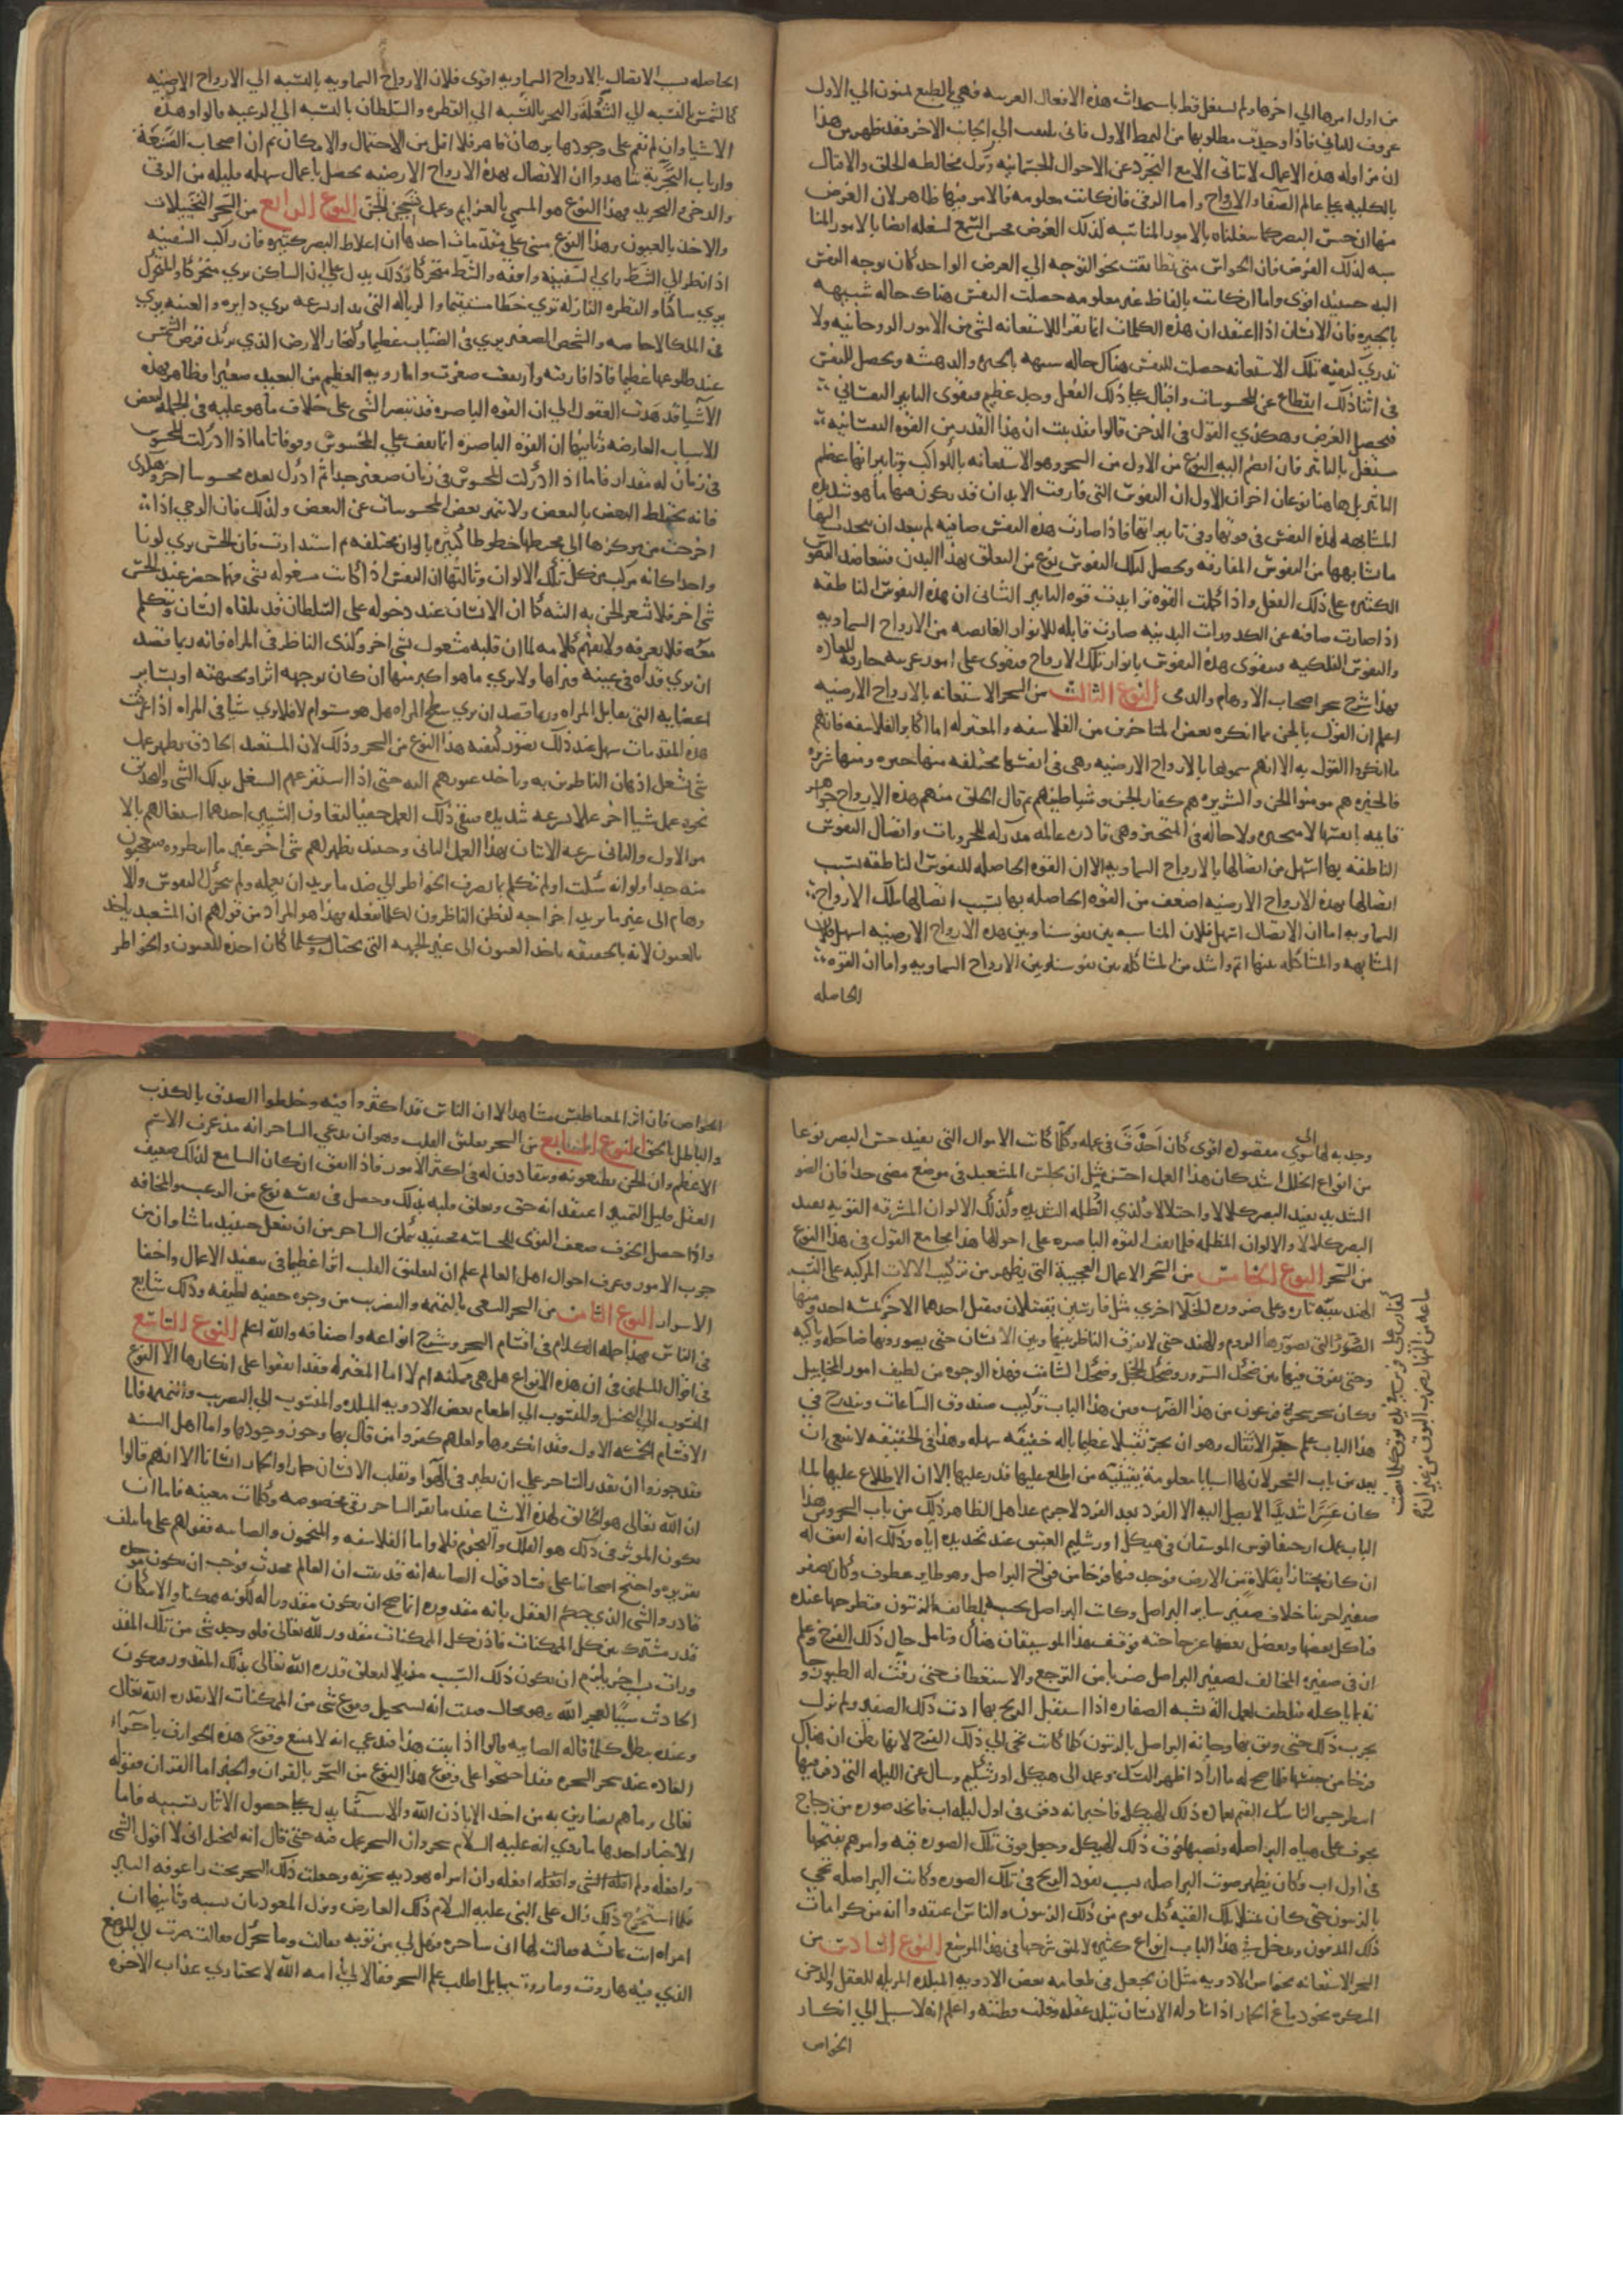 من اول امرها الي اخرها ولم تشتغل قط باستحداث هذه الافعال الغريبه فهي بالطبع حنون الي الاول
عزوف للثاني فاذا وجدت مطلوبها من النمط الاول فاني تلتفت الي الجانب الاخر فقد ظهر من هذا
ان مزاوله هذه الاعمال لا تتاتي الا مع التجرد عن الاحوال الجسمانيه وترك مخالطه الخلق والاقبال
بالكليه علي عالم الصفا والارواح واما الرقي فان كانت معلومه فالامر فيها ظاهر لان الغرض
منها ان حس البصر كما شغلناه بالامور المناسبه لذلك الغرض فحس السمع نشغله ايضا بالامور المنا
سبه لذلك الغرض فان الحواس متي تطابقت نحو التوجه الي الغرض الواحد كان توجه النفس
اليه حينئذ اقوي واما ان كانت بالفاظ غير معلومه حصلت للنفس هناك حاله شبيهه
بالحيره فان الانسان اذا اعتقد ان هذه الكلمات انما تقرا للاستعانه بشي من الامور الروحانيه ولا
تدري كيفيه تلك الاستعانه حصلت للنفس هناك حاله شبيهه بالحيره والدهشه وتحصل للنفس
في اثنا ذلك انقطاع عن المحسوسات واقبال علي ذلك الفعل وجد عظيم فيقوي التاثير النفساني
فيحصل الغرض وهكذي القول في الدخن قالوا فقد ثبت ان هذا القدر من القوه النفسانيه
مشتغل بالتاثير فان انضم اليه النوع من الاول من السحر وهو الاستعانه بالكواكب وتاثيراتها عظم
التاثير بل هاهنا نوعان اخران الاول ان النفوس التي فارقت الابدان قد يكون فيها ما هو شديد
المشابهه لهذه النفس في قوتها وفي تاثيراتها فاذا صارت هذه النفس صافيه لم يبعد ان ينجذب اليها
ما شابهها من النفوس المفارقه ويحصل لتلك النفوس نوع من التعلق بهذا البدن فتتعاضد النفوس
الكثيره علي ذلك الفعل واذا كملت القوه تزايدت قوه التاثير الثاني ان هذه النفوس الناطقه
اذا صارت صافيه عن الكدورات البدنيه صارت قابله للانوار الفايضه من الارواح السماويه
والنفوس الفلكيه فتقوي هذه النفوس بانوار تلك الارواح فتقوي علي امور غريبه خارقه للعاده
فهذا شرح سحر اصحاب الاوهام والدمي النوع الثالث من السحر الاستعانه بالارواح الارضيه
اعلم ان القول بالجن مما انكره بعض المتاخرين من الفلاسفه والمعتزله اما اكابر الفلاسفه فانهم
ما انكروا القول به الا انهم سموها بالارواح الارضيه وهي في انفسها مختلفه منها خيره ومنها شريره
فالخيره هم مومنوا الجن والشريره هم كفار الجن وشياطينهم ثم قال الخلق منهم هذه الارواح جواهر
قايمه بانفسها لا متحيزه ولا حاله في المتحيز وهي قادره عالمه مدركه للجزويات واتصال النفوس
الناطقه بها اسهل من اتصالها بالارواح السماويه الا ان القوه الحاصله للنفوس الناطقه بسبب
اتصالها بهذه الارواح الارضيه اضعف من القوه الحاصله بها بسبب اتصالها بتلك الارواح
السماويه اما ان الاتصال اسهل فلان المناسبه بين نفوسنا وبين هذه الارواح الارضيه اسهل ولان
المشابهه والمشاكله بينها اتم واشد من المشاكله بين نفوسنا وبين الارواح السماويه واما ان القوه
الحاصله
الحاصله بسبب الاتصال بالارواح السماويه اقوي فلان الارواح السماويه بالنسبه الي الارواح الارضيه
كالشمس بالنسبه الي الشعلة والبحر بالنسبه الي القطره والسلطان بالنسبه الي الرعيه قالوا وهذه
الاشيا وان لم نقم علي وجودها برهان قاهر فلا اقل من الاحتمال والامكان ثم ان اصحاب الصنعة
وارباب التجربة شاهدوا ان الاتصال بهذه الارواح الارضيه يحصل باعمال سهله قليله من الرقي
والدخن والتجريد وهذا النوع هو المسمي بالعزايم وعمل تسخير الجن النوع الرابع من السحر التخييلات
والاخذ بالعيون وهذا النوع مبني علي مقدمات احدها ان اغلاط البصر كثيره فان راكب السفينه
اذا نظر الي الشط راي السفينه واقفه والشط متحركا وذلك يدل علي ان الساكن يري متحركا والمتحرك
يري ساكنا والقطره النازله تري خطا مستقيما والذباله التي تدار بسرعه تري دايره والعنبه تري
في الماء كالاجاصه والشخص الصغير يري في الضباب عظيما وكبخار الارض الذي يريك قرص الشمس
عند طلوعها عظيما فاذا فارقته وارتفعت صغرت واما رويه العظيم من البعيد صغيرا فظاهر فهذه
الاشيا قد هدت العقول الي ان القوه الباصره قد تبصر الشي علي خلاف ما هو عليه في الجمله لبعض
الاسباب العارضه وثانيها ان القوه الباصره انما تقف علي المحسوس وقوفا تاما اذا ادركت المحسوس
في زمان له مقدار فاما اذا ادركت المحسوس في زمان صغير جدا ثم ادرك بعده محسوسا اخر وهكذي
فانه يختلط البعض بالبعض ولا يتميز بعض المحسوسات عن البعض ولذلك فان الرحي اذا
اخرجت من مركزها الي محيطها خطوطا كثيره بالوان مختلفه ثم استدارت فان الحس يري لونا
واحدا كانه مركب من كل تلك الالوان وثالثها ان النفس اذا كانت مشغوله بشي فربما حضر عند الحس
شي اخر فلا تشعر الحس به البته كما ان الانسان عند دخوله علي السلطان قد يلقاه انسان ويتكلم
معه فلا يعرفه ولا يفهم كلامه لما ان قلبه مشغول بشي اخر وكذي الناظر في المراه فانه ربما قصد
ان يري قذاه في عينه فيراها ولا يري ما هو اكبر منها ان كان بوجهه اثر او بجبهته او بساير
اعضايه التي تقابل المراه وربما قصد ان يري سطح المراه هل هو مستو ام لا فلا يري شيا في المراه اذا عرفت
هذه المقدمات سهل عند ذلك تصور كيفيه هذا النوع من السحر وذلك لان المشعبد الحاذق يظهر عمل
شي يشغل اذهان الناظرين به وياخذ عيونهم اليه حتي اذا استفرغهم الشغل بذلك الشي والتحديق
نحوه عمل شيا اخر عملا بسرعه شديده فيبقي ذلك العمل خفيا لتفاوت الشيين احدهما اشتغالهم بالا
مر الاول والثاني سرعه الاتيان بهذا العمل الثاني وحينئذ يظهر لهم شي اخر غير ما انتظروه فيتعجبون
منه جدا ولو انه سكت ولم يتكلم بما يصرف الخواطر الي ضد ما يريد ان يعمله ولم يحرك النفوس والا
وهام الي غير ما يريد اخراجه لفطن الناظرون لكل ما يفعله فهذا هو المراد من قولهم ان المشعبد ياخذ
بالعيون لانه بالحقيقه ياخذ العيون الي غير الجهه التي يحتال وكلما كان اخذه للعيون والخواطر
وجذبه لها الي سوي مقصوده اقوي كان احذق في عمله وكلما كانت الاحوال التي تفيد حس البصر نوعا
من انواع الخلل اشد كان هذا العمل احسن مثل ان يجلس المتشعبد في موضع مضي جدا فان الضو
الشديد يفيد البصر كلالا واختلالا وكذي الظلمه الشديده وكذلك الالوان المشرقه القويه تفيد
البصر كلالا والالوان المظلمه قلما تقف القوه الباصره علي احوالها فهذا مجامع القول في هذا النوع
من السحر النوع الخامس من السحر الاعمال العجيبة التي تظهر من تركيب الالات المركبه علي النسب
الهندسيه تاره وعلي ضروره الخلا اخري مثل فارسين يقتتلان فيقتل احدهما الاخر
الصور التي تصورها الروم والهند حتي لا يفرق الناظر بينها وبين الانسان حتي يصورونها ضاحكه وباكيه
وحتي يفرق فيها بين ضحك السرور وضحك الخجل وضحك الشامت فهذه الوجوه من لطيف امور المخاييل
وكان سحر سحرة فرعون من هذا الضرب ومن هذا الباب تركيب صندوق الساعات ويندرج في
هذا الباب علم جر الاثقال وهو ان يجر ثقيلا عظيما باله خفيفه سهله وهذا في الحقيقه لا ينبغي ان
يعد من باب السحر لان لها اسبابا معلومة يقينيه من اطلع عليها قدر عليها الا ان الاطلاع عليها لما
كان عسرا شديدا لا يصل اليه الا الفرد بعد الفرد لا جرم عد اهل الظاهر ذلك من باب السحر ومن هذا
الباب عمل ارجعيانوس الموسيقار في هيكل اورشليم العتيق عند تجديده اياه وذلك انه اتفق له
ان كان مجتازا بفلاة من الارض فوجد فيها فرخا من فراخ البراصل وهو طاير عطوف وكان يصفر
صفيرا حزينا خلاف صفير ساير البراصل وكانت البراصل تجيه بلطايف الزيتون فتطرحها عنده
فياكل بعضها ويفضل بعضها عن حاجته فوقف هذا الموسيقار هناك وتامل حال ذلك الفرخ وعلم
ان في صفيره المخالف لصفير البراصل ضربا من التوجع والاستعطاف حتي رقت له الطيور وجا
ته بما ياكله فتلطف لعمل اله تشبه الصفاره اذا استقبل الريح بها ادت ذلك الصفير ولم يزل
يجرب ذلك حتي وثق بها وجاته البراصل بالزيتون كما كانت تجي الي ذلك الفرخ لانها تظن ان هناك
فرخا من جنسها فلما صح له ما اراد اظهر النسك وعمد الي هيكل اورشليم وسال عن الليله التي دفن فيها
اسطرخس الناسك القيم بعماره ذلك الهيكل فاخبر انه دفن في اول ليله اب فاتخذ صوره من زجاج
مجوف علي هياه البراصله ونصبها فوق ذلك الهيكل وجعل فوق تلك الصوره قبه وامرهم بفتحها
في اول اب وكان يظهر صوت البراصله بسبب نفوذ الريح في تلك الصوره وكانت البراصله تجي
بالزيتون حتي كان تمتلا تلك القبه كل يوم من ذلك الزيتون والناس اعتقدوا انه من كرامات
ذلك المدفون ويدخل في هذا الباب انواع كثيره لا يليق شرحها في هذا الموضع النوع السادس من
السحر الاستعانه بخواص الادويه مثل ان يجعل في طعامه بعض الادويه المبلده المزيله للعقل والدخن
المسكره نحو دماغ الحمار اذا تناوله الانسان تبلد عقله وقلت فطنته واعلم انه لا سبيل الي انكار
الخواص
الخواص فان اثر المغناطيس مشاهد الا ان الناس قد اكثروا فيه وخلطوا الصدق بالكذب
والباطل بالحق النوع السابع من السحر تعليق القلب وهو ان يدعي الساحر انه قد عرف الاسم
الاعظم وان الجن يطيعونه وينقادون له في اكثر الامور فاذا اتفق ان كان السامع لذلك ضعيف
العقل قليل التمييز اعتقد انه حق وتعلق قلبه بذلك وحصل في نفسه نوع من الرعب والمخافه
واذا حصل الخوف ضعف القوي الحساسه فحينئذ يمكن الساحر من ان يفعل حينئذ ما شا وان من
جرب الامور وعرف احوال اهل العالم علم ان لتعليق القلب اثرا عظيما في تنفيذ الاعمال واخفا
الاسرار النوع الثامن من السحر السعي بالنميمه والتضريب من وجوه خفيه لطيفه وذلك شايع
في الناس فهذا جمله الكلام في اقسام السحر وشرح انواعه واصنافه والله اعلم النوع التاسع
في اقوال المسلمين في ان هذه الانواع هل هي ممكنه ام لا اما المعتزله فقد اتفقوا علي انكارها الا النوع
المنسوب الي التخييل والمنسوب الي اطعام بعض الادويه المبلده والمنسوب الي التضريب والنميمه فاما
الاقسام الخمسه الاول فقد انكروها ولعلهم كفروا من قال بها وجوز وجودها واما اهل السنه
فقد جوزوا ان يقدر الساحر علي ان يطير في الهوا ويقلب الانسان حمارا والحمار انسانا الا انهم قالوا
ان الله تعالي هو الخالق لهذه الاشيا عند ما يقرا الساحر رقي مخصوصه وكلمات معينه فاما ان
يكون الموثر في ذلك هو الفلك والنجوم فلا واما الفلاسفه والمنجمون والصابيه فقولهم علي ما سلف
تقريره واحتج اصحابنا علي فساد قول الصابيه انه قد ثبت ان العالم محدث فوجب ان يكون موجده
قادرا والشي الذي حكم العقل بانه مقدور انما صح ان يكون مقدورا له لكونه ممكنا والامكان
قدر مشترك بين كل الممكنات فاذن كل الممكنات مقدور لله تعالي فلو وجد شي من تلك المقد
ورات بسبب اخر يلزم ان يكون ذلك السبب مزيلا لتعلق قدره الله تعالي بذلك المقدور فيكون
الحادث سببا لعجز الله وهو محال فثبت انه يستحيل وقوع شي من الممكنات الا بقدره الله تعالي
وعنده يبطل كلما قاله الصابيه قالوا اذا ثبت هذا فندعي انه لا يمتنع وقوع هذه الخوارق باجراء
العاده عند سحر السحره فقد احتجوا علي وقوع هذا النوع من السحر بالقران والخبر اما القران فقوله
تعالي وما هم بضارين به من احد الا باذن الله والاستثنا يدل علي حصول الاثار بسببه فاما
الاخبار احدها ما روي انه عليه السلام سحر وان السحر عمل فيه حتي قال انه ليخيل الي اني لا اقول الشي
وافعله ولم اقله وافعله وان امراه يهوديه سحرته وجعلت ذلك السحر تحت راعوفه البير
فلما استخرج ذلك زال علي النبي عليه السلام ذلك العارض ونزل المعوذتان بسببه وثانيها ان
امراه اتت عايشه فقالت لها اني ساحره فهل لي من توبه فقالت وما سحرك فقالت صرت الي الموضع
الذي فيه هاروت وماروت ببابل اطلب علم السحر فقالا لي يا امه الله لا تختاري عذاب الاخره